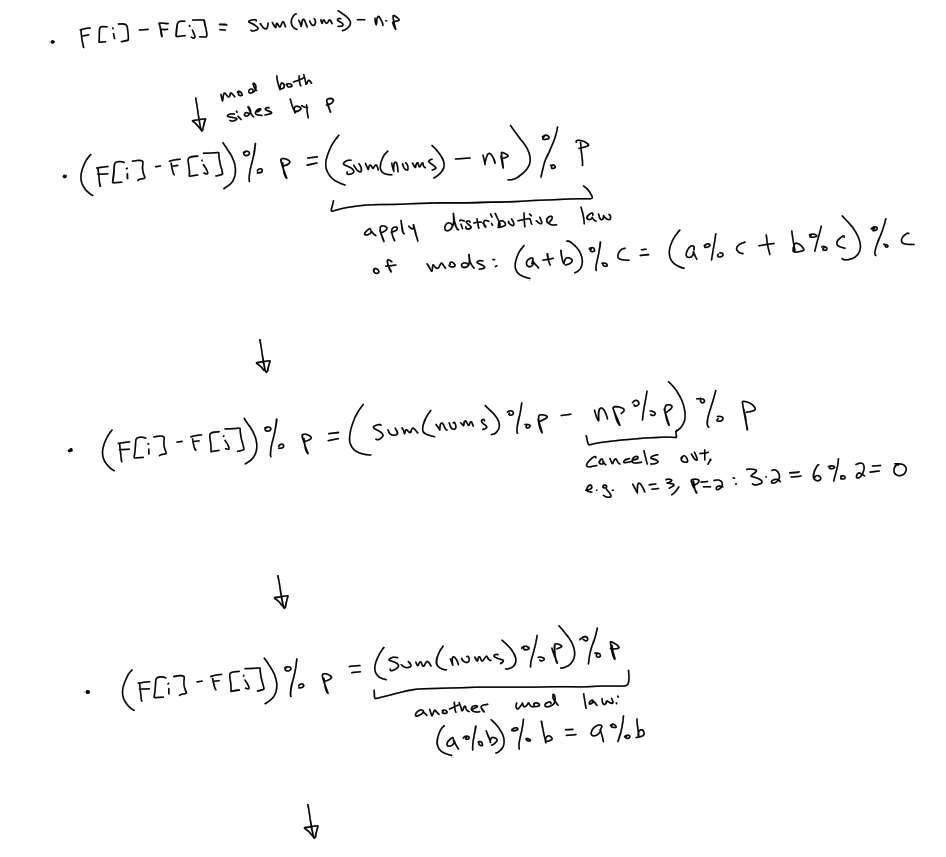 · F[i] - F[j] = sum(nums) - n·p
↓ mod both
sides by p
· (F[i] - F[j]) % p = (sum(nums) - np) % p
apply distributive law
of mods: (a+b) % c = (a % c + b % c) % c
↓
· (F[i] - F[j]) % p = (sum(nums) % p - np % p) % p
cancels out,
e.g. n=3, p=2 : 3·2 = 6 % 2 = 0
↓
· (F[i] - F[j]) % p = (sum(nums) % p) % p
another mod law:
(a % b) % b = a % b
↓